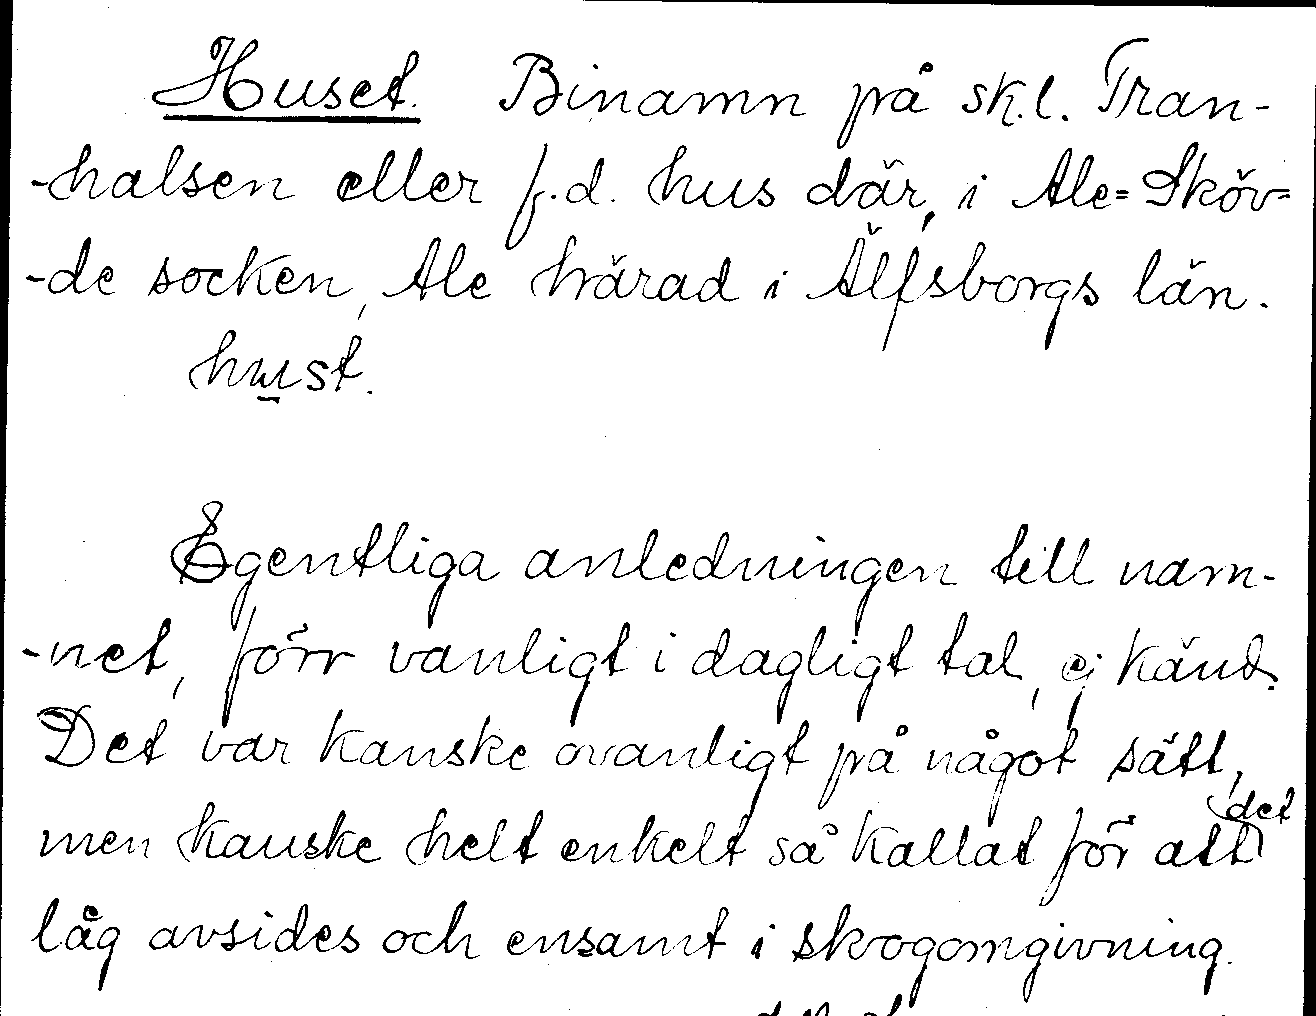 Huset. Binamn på sk.l. Tran-
-halsen eller f.d. hus där, i Ale=Sköv=
-de socken, Ale härad i Älfsborgs län.
hust.
Egentliga anledningen till nam-
-net, förr vanligt i dagligt tal, ej känd.
Det var kanske ovanligt på något sätt,
men kanske helt enkelt så kallat för att det
låg avsides och ensamt i skogomgivning.